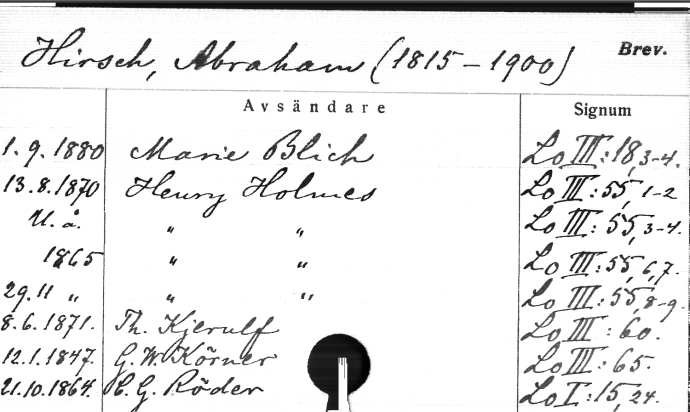 Hirsch, Abraham (1815-1900) Brev.
Avsändare Signum
1.9.1880 Marie Blich Lo III:18, 3-4.
13.8.1870 Henry Holmes Lo III:55, 1-2
U.å. " " Lo III:55, 3-4.
1865 " " Lo III:55, 6, 7.
29.11 " " " Lo III:55, 8-9.
8.6.1871. Th. Kjerulf Lo III:60.
12.1.1847. G.W. Körner Lo III:65.
21.10.1864. C.G. Röder Lo I:15, 24.